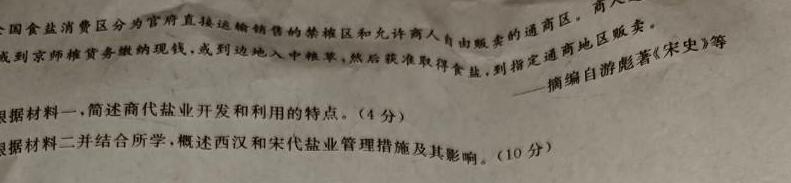 全国食盐消费区分为官府直接运输销售的禁榷区和允许商人自由贩卖的通商区。商人
或到京师榷货务缴纳现钱,或到边地入中粮草,然后获准取得食盐,到指定通商地区贩卖。
——摘编自游彪著《宋史》等
根据材料一,简述商代盐业开发和利用的特点。(4分)
根据材料二并结合所学,概述西汉和宋代盐业管理措施及其影响。(10分)